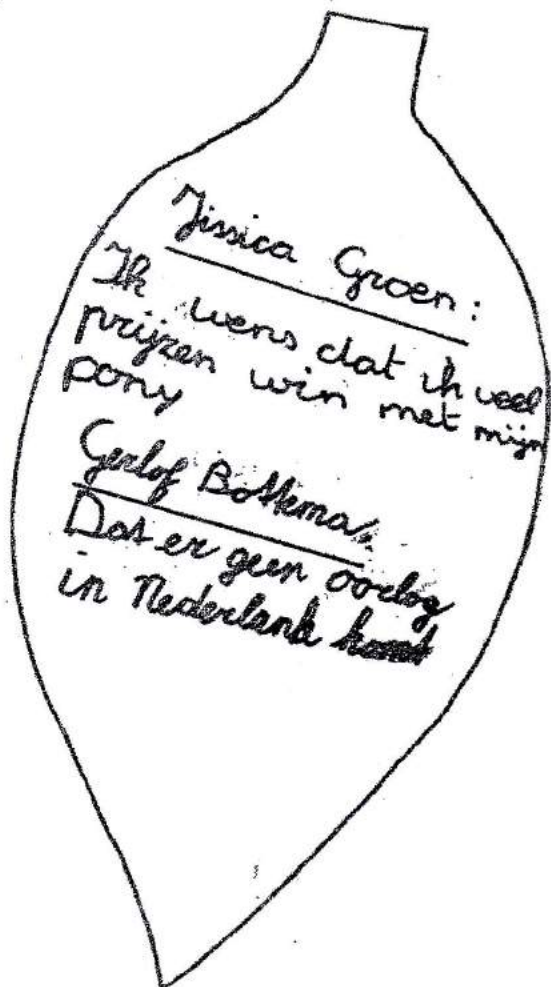 Jissica Groen:
Ik wens dat ik veel
prijzen win met mijn
pony
Gerlof Bottema:
Dat er geen oorlog
in Nederland komt